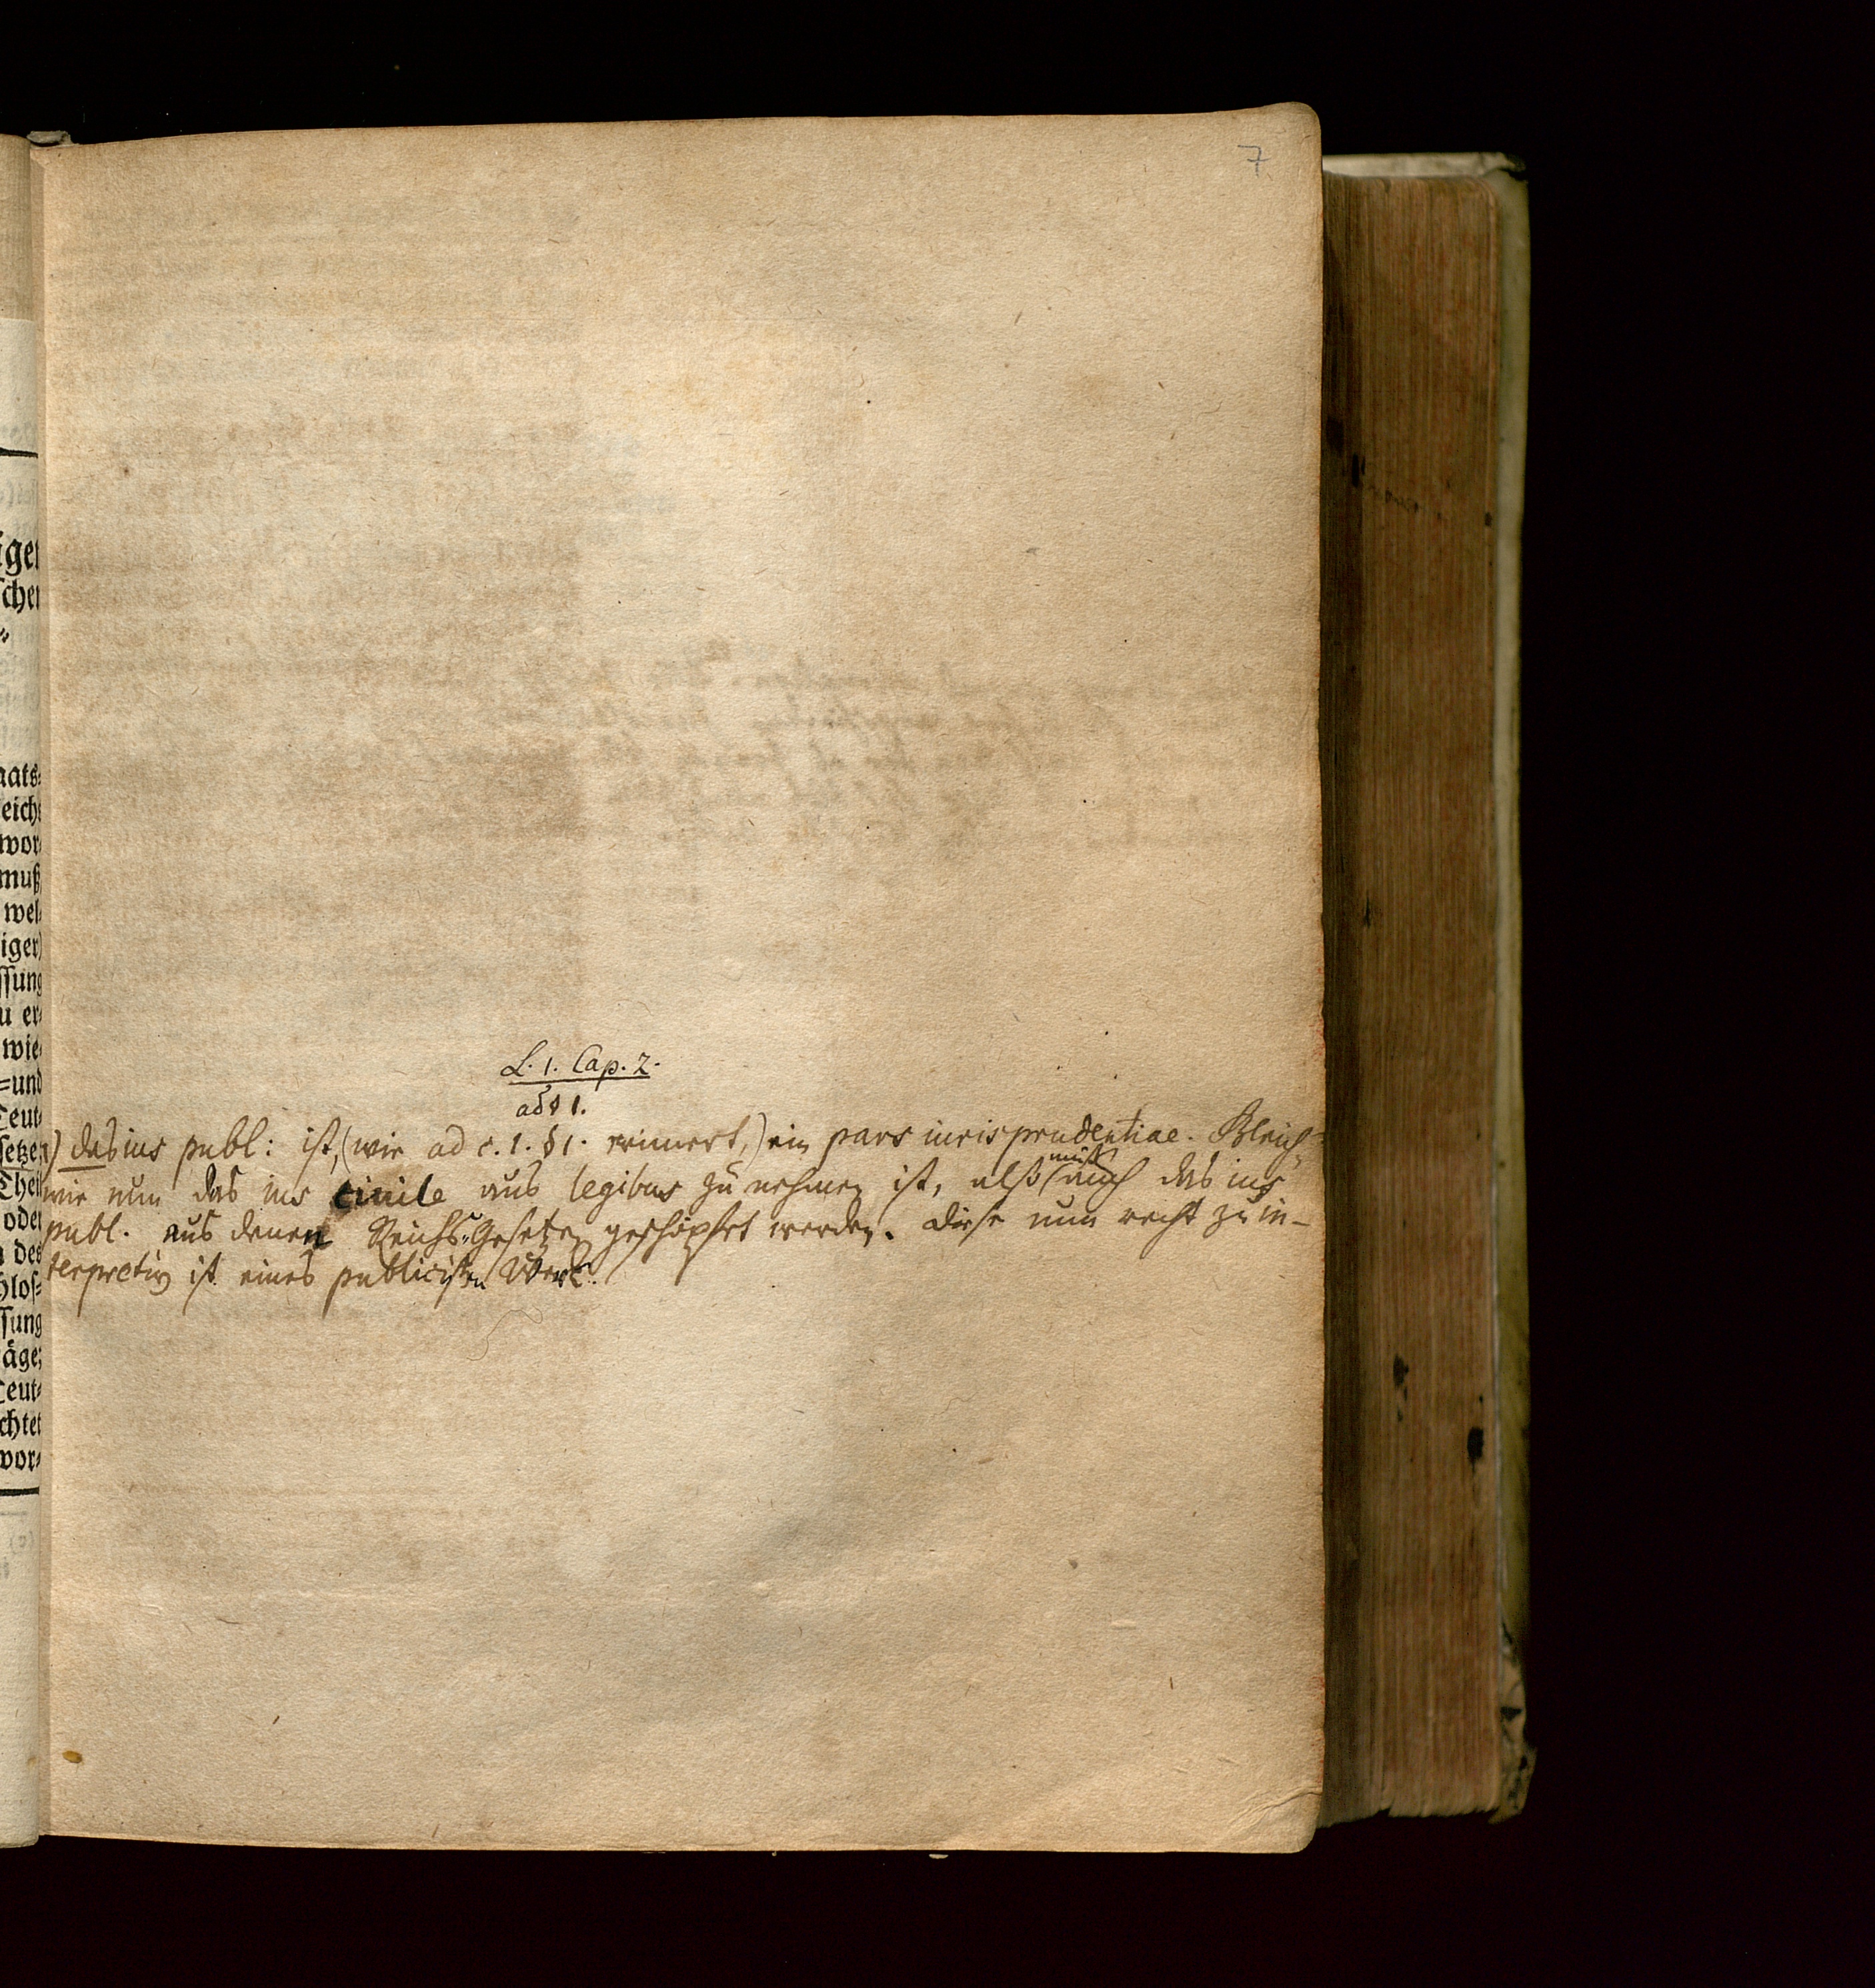 7
L. 1. Cap. 2.
ad § 1.
1) das ius publ: ist, (wie ad c. 1. § 1. erinnert,) ein pars iurisprudentiae. Gleich-
wie nun das ius civile aus legibus zu nehmen ist, also muß auch das ius
publ. aus denen Reichs-Gesetzen geschöpfet werden. Diese nun recht zu in-
terpretiren ist eines publicisten Werck.
iger
schen
aats-
eichs
wor-
muß
wel-
iger)
ssung
u er-
wie-
=und
Teut-
setzen
Theil
oder
n des
hlos-
ssung
äge;
Teut-
chtet
wor-